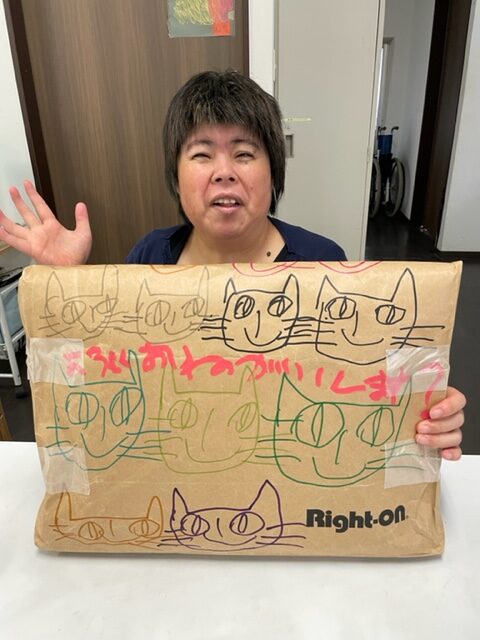 よろしくおねがいします
Right-on